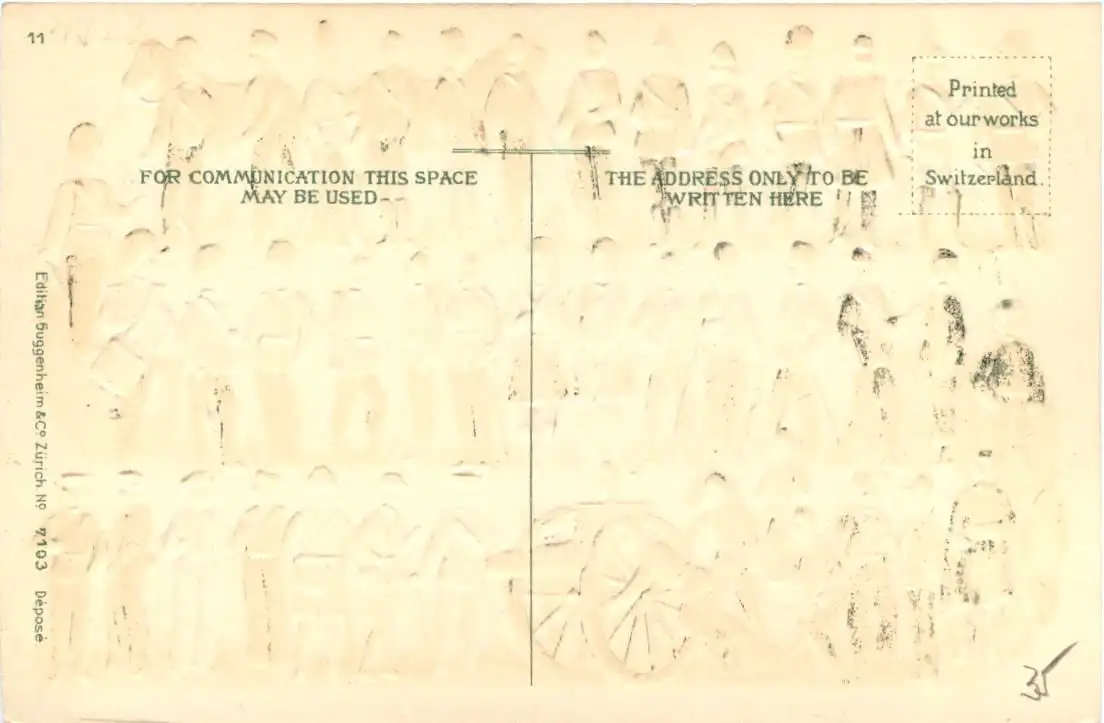 11
FOR COMMUNICATION THIS SPACE
MAY BE USED--
THE ADDRESS ONLY TO BE
WRITTEN HERE
Printed
at our works
in
Switzerland.
Edition Guggenheim & Co Zürich. No 7103 Déposé
35